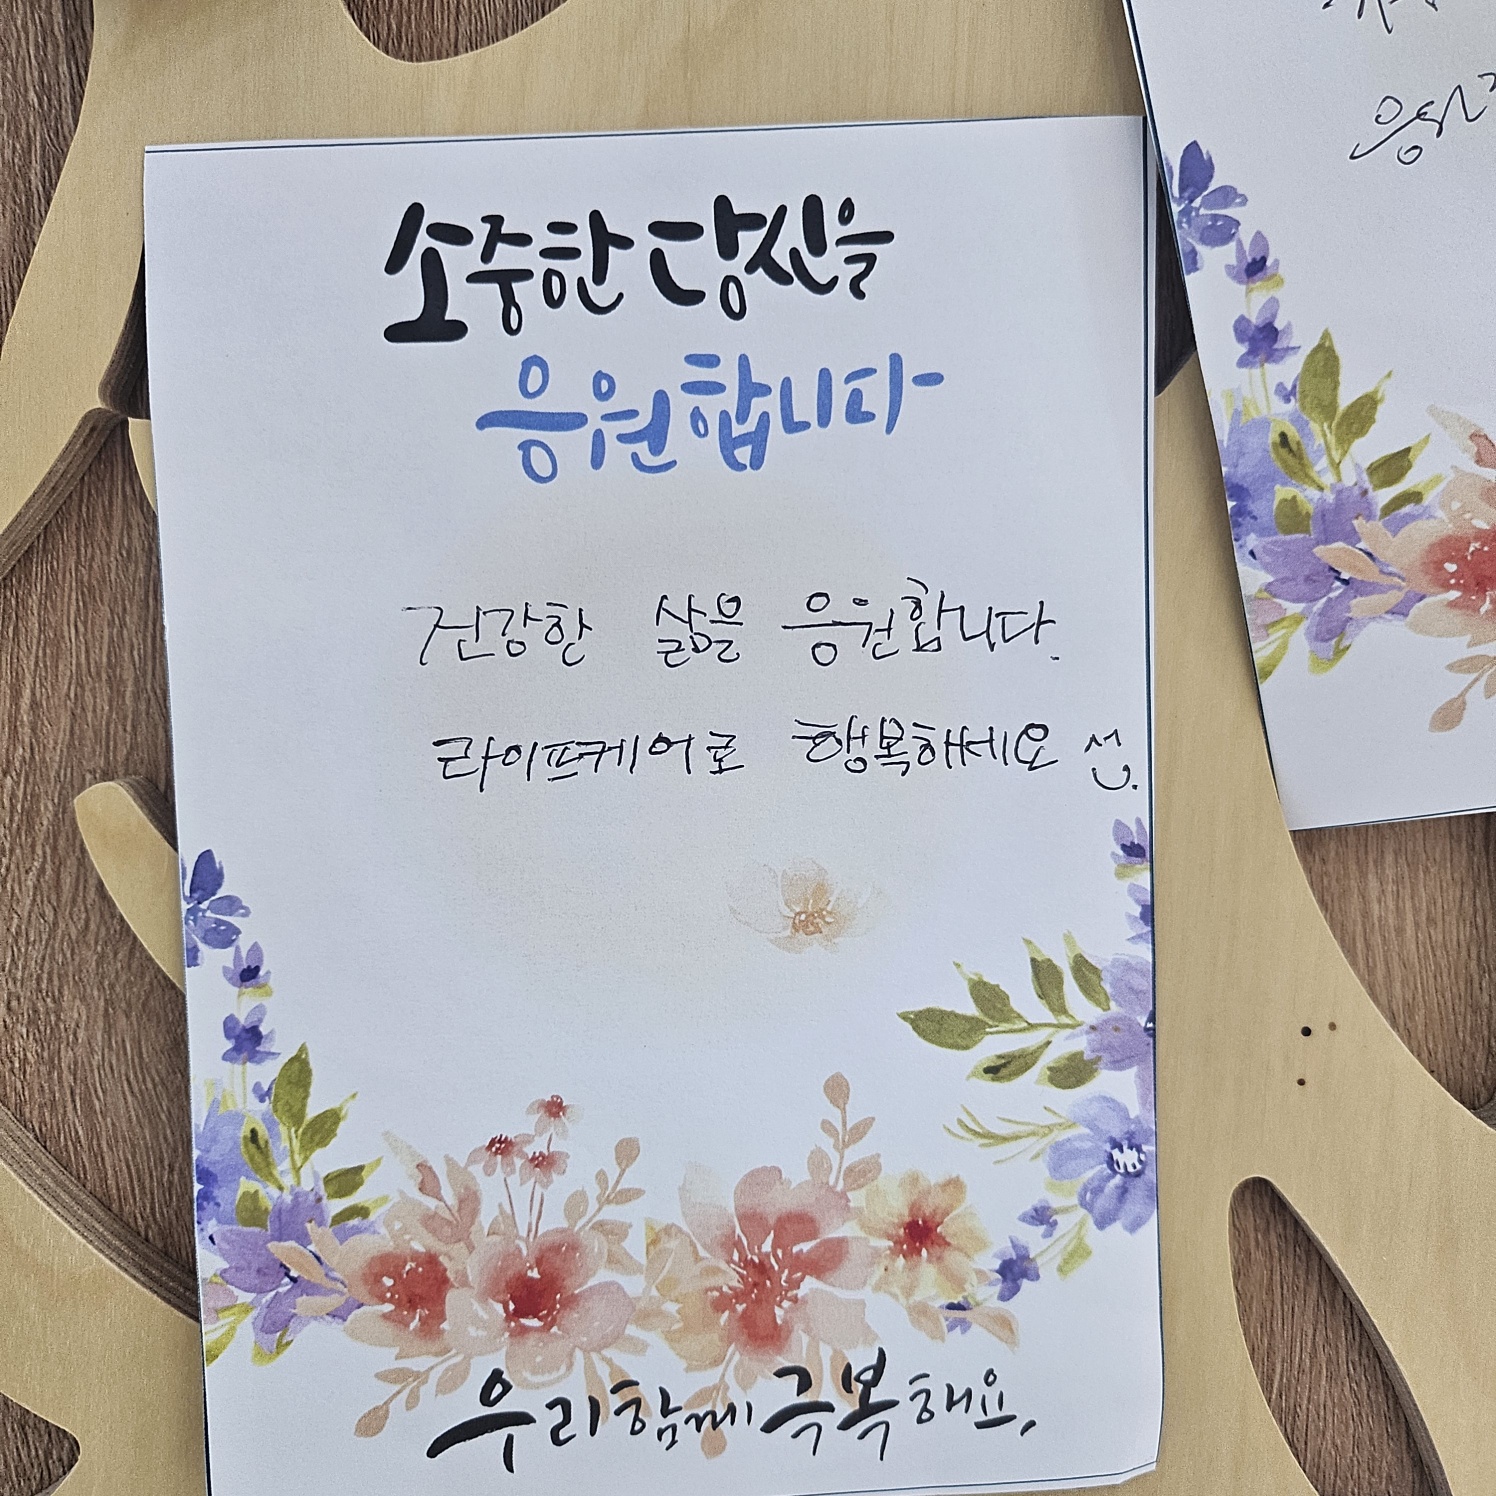 소중한 당신을
응원합니다
건강한 삶을 응원합니다.
라이프케어로 행복하세요
우리 함께 극복해요,